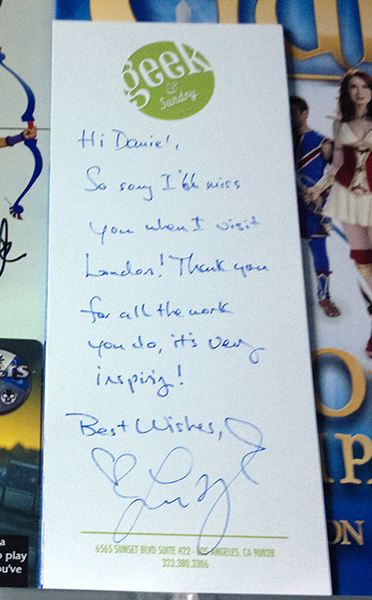 geek
&
Sundry
Hi Daniel,
So sorry I'll miss
you when I visit
London! Thank you
for all the work
you do, it's very
inspiring!
Best Wishes,
6565 SUNSET BLVD SUITE 422 - LOS ANGELES, CA 90028
323.380.3306
ers
a
o play
ou've
O
PA
ON